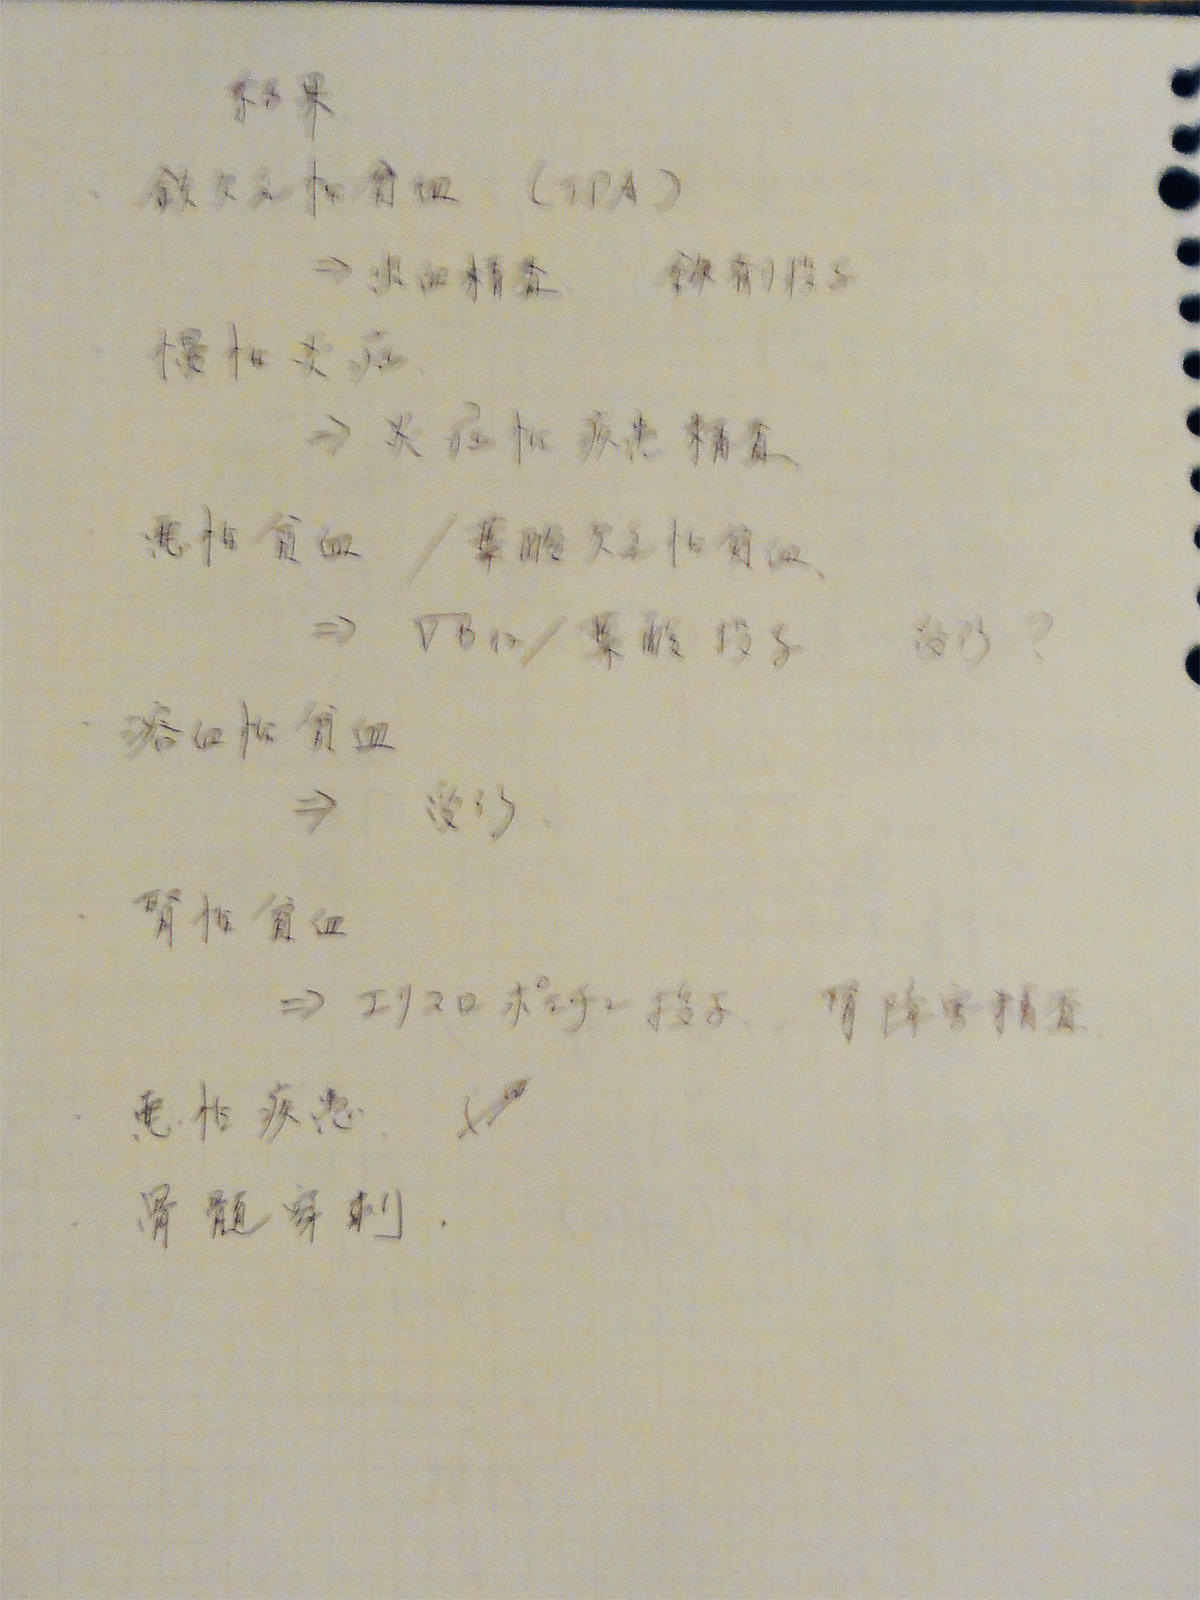 結果
・鉄欠乏性貧血 (IDA)
⇒ 出血精査 鉄剤投与
・慢性炎症
⇒ 炎症性疾患精査
・悪性貧血 / 葉酸欠乏性貧血
⇒ VB12/葉酸投与
・溶血性貧血
⇒
・腎性貧血
⇒ エリスロポエチン投与、腎障害精査
・悪性疾患
・骨髄穿刺.